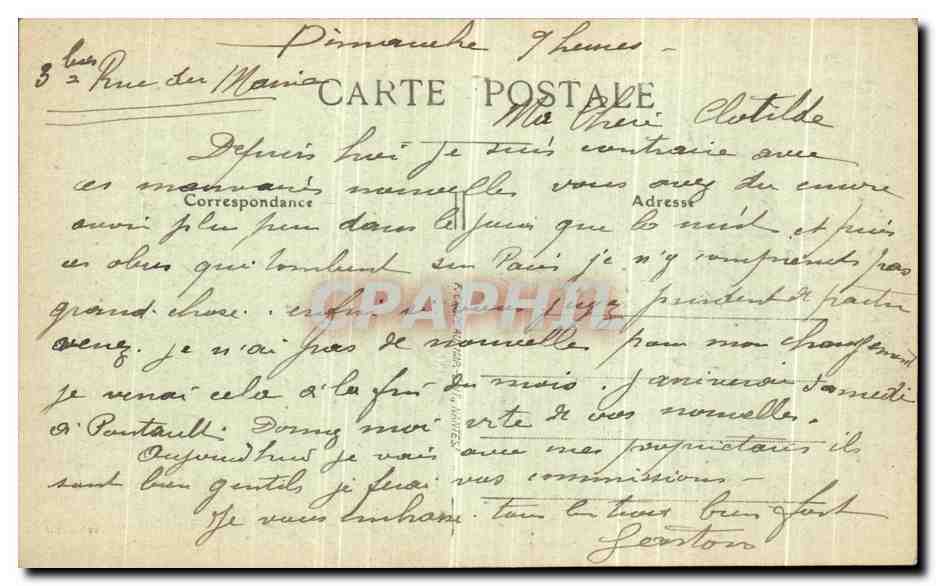 Dimanche 9 heures -
3 bis Rue du Maine
CARTE POSTALE
Ma Chère Clotilde
Depuis hier je suis contraire avec
ces mauvaises nouvelles vous avez du encore
Correspondance Adresse
avoir plus peur dans le jour que la nuit et puis
ces obus qui tombent sur Paris je n'y comprends pas
grand chose. enfin si vous jugez prudent de partir
venez. je n'ai pas de nouvelles pour mon changement
je verrai cela à la fin du mois. J'arriverai samedi
à Pontault. Donnez moi vite de vos nouvelles.
Aujourd'hui je vais avec mes propriétaires ils
sont bien gentils je ferai vos commissions -
Je vous embrasse tous les trois bien fort
Gaston
CPAPHIL
NANTES